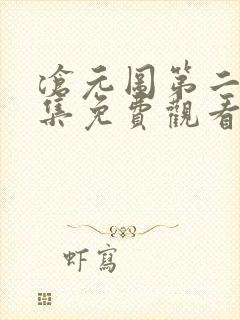 滄元圖第二
集免費觀看
虾寫